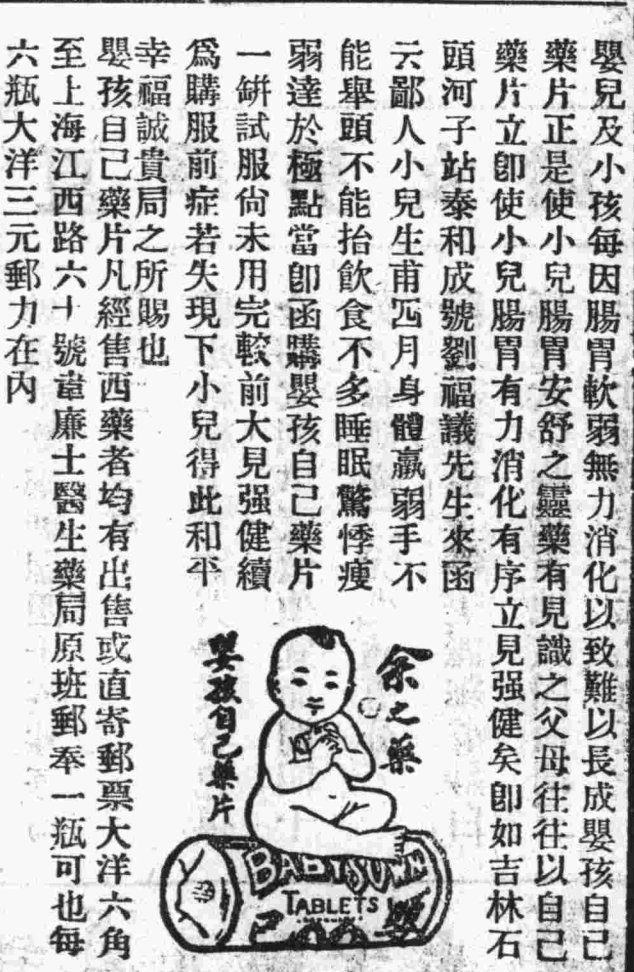 嬰兒及小孩每因腸胃軟弱無力消化以致難以長成嬰孩自己
藥片正是使小兒腸胃安舒之靈藥有見識之父母往往以自己
藥片立卽使小兒腸胃有力消化有序立見强健矣卽如吉林石
頭河子站泰和成號劉福議先生來函
云鄙人小兒生甫四月身體羸弱手不
能舉頭不能抬飮食不多睡眠驚悸瘦
弱達於極點當卽函購嬰孩自己藥片
一缾試服尙未用完較前大見强健續
爲購服前症若失現下小兒得此和平
幸福誠貴局之所賜也
嬰孩自己藥片凡經售西藥者均有出售或直寄郵票大洋六角
至上海江西路六十號韋廉士醫生藥局原班郵奉一瓶可也每
六瓶大洋三元郵力在內
余之藥
嬰孩自己藥片
BABY'S OWN
TABLETS